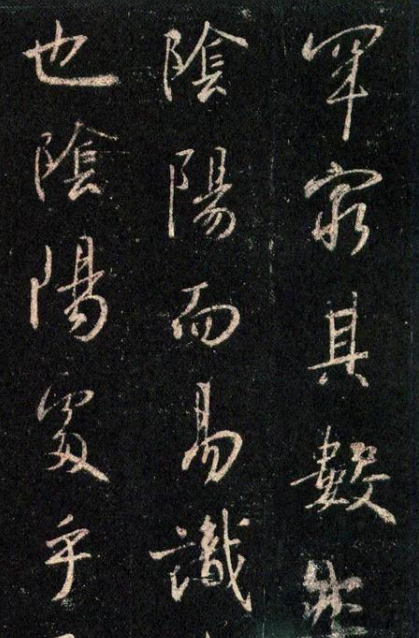 罕窮其數然
陰陽而易識
也陰陽處乎